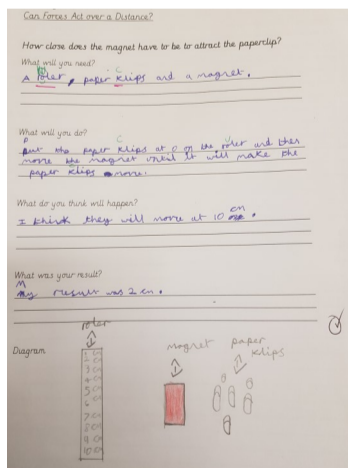 Can Forces Act over a Distance?
How close does the magnet have to be to attract the paperclip?
What will you need?
A roler, paper klips and a magnet.
What will you do?
Put the paper klips at 0 on the roler and then
move the magnet until it will make the
paper klips move.
What do you think will happen?
I think they will move at 10 cm.
What was your result?
My result was 2 cm.
roler
Diagram
magnet
paper
klips
1
2
3
4
5
6
7
8
9
10